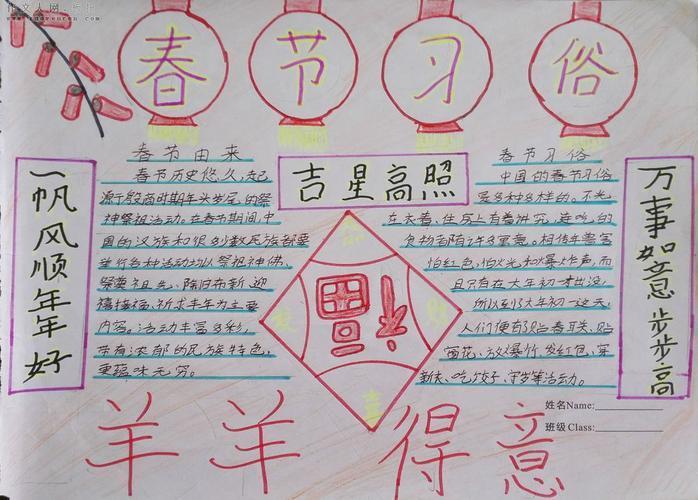 春节习俗
一帆风顺年年好
吉星高照
万事如意步步高
春节由来
春节历史悠久,起
源于殷商时期年头岁尾的祭
神祭祖活动。在春节期间,中
国的汉族和很多少数民族都要
举行各种活动均以祭祖神佛、
祭奠祖先、除旧布新、迎
禧接福、祈求丰年为主要
内容。活动丰富多彩,
带有浓郁的民族特色,
更蕴味无穷。
春节习俗
中国的春节习俗
是多种多样的。不光
在衣着、住房上有着讲究,连吃的
食物都有许多寓意。相传年兽害
怕红色,怕火光和爆炸声,而
且只有在大年初一才出没,
所以到了大年初一这天,
人们便有了贴春联、贴
窗花、放爆竹、发红包、穿
新衣、吃饺子、守岁等活动。
福
发
财
喜
姓名Name:
班级Class:
羊羊得意